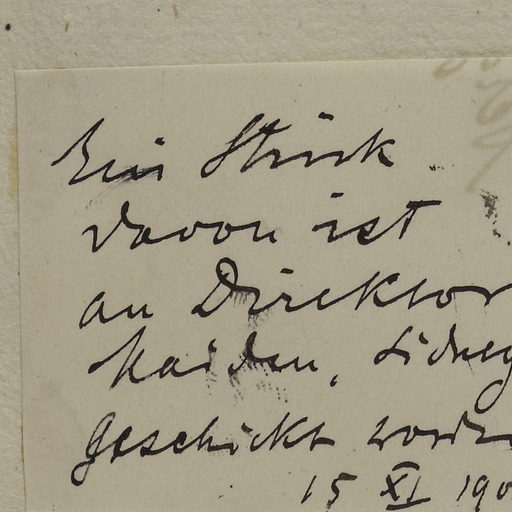 Ein Stück
davon ist
an Direktor
Maiden, Sidney
geschickt worden
15 XI 190